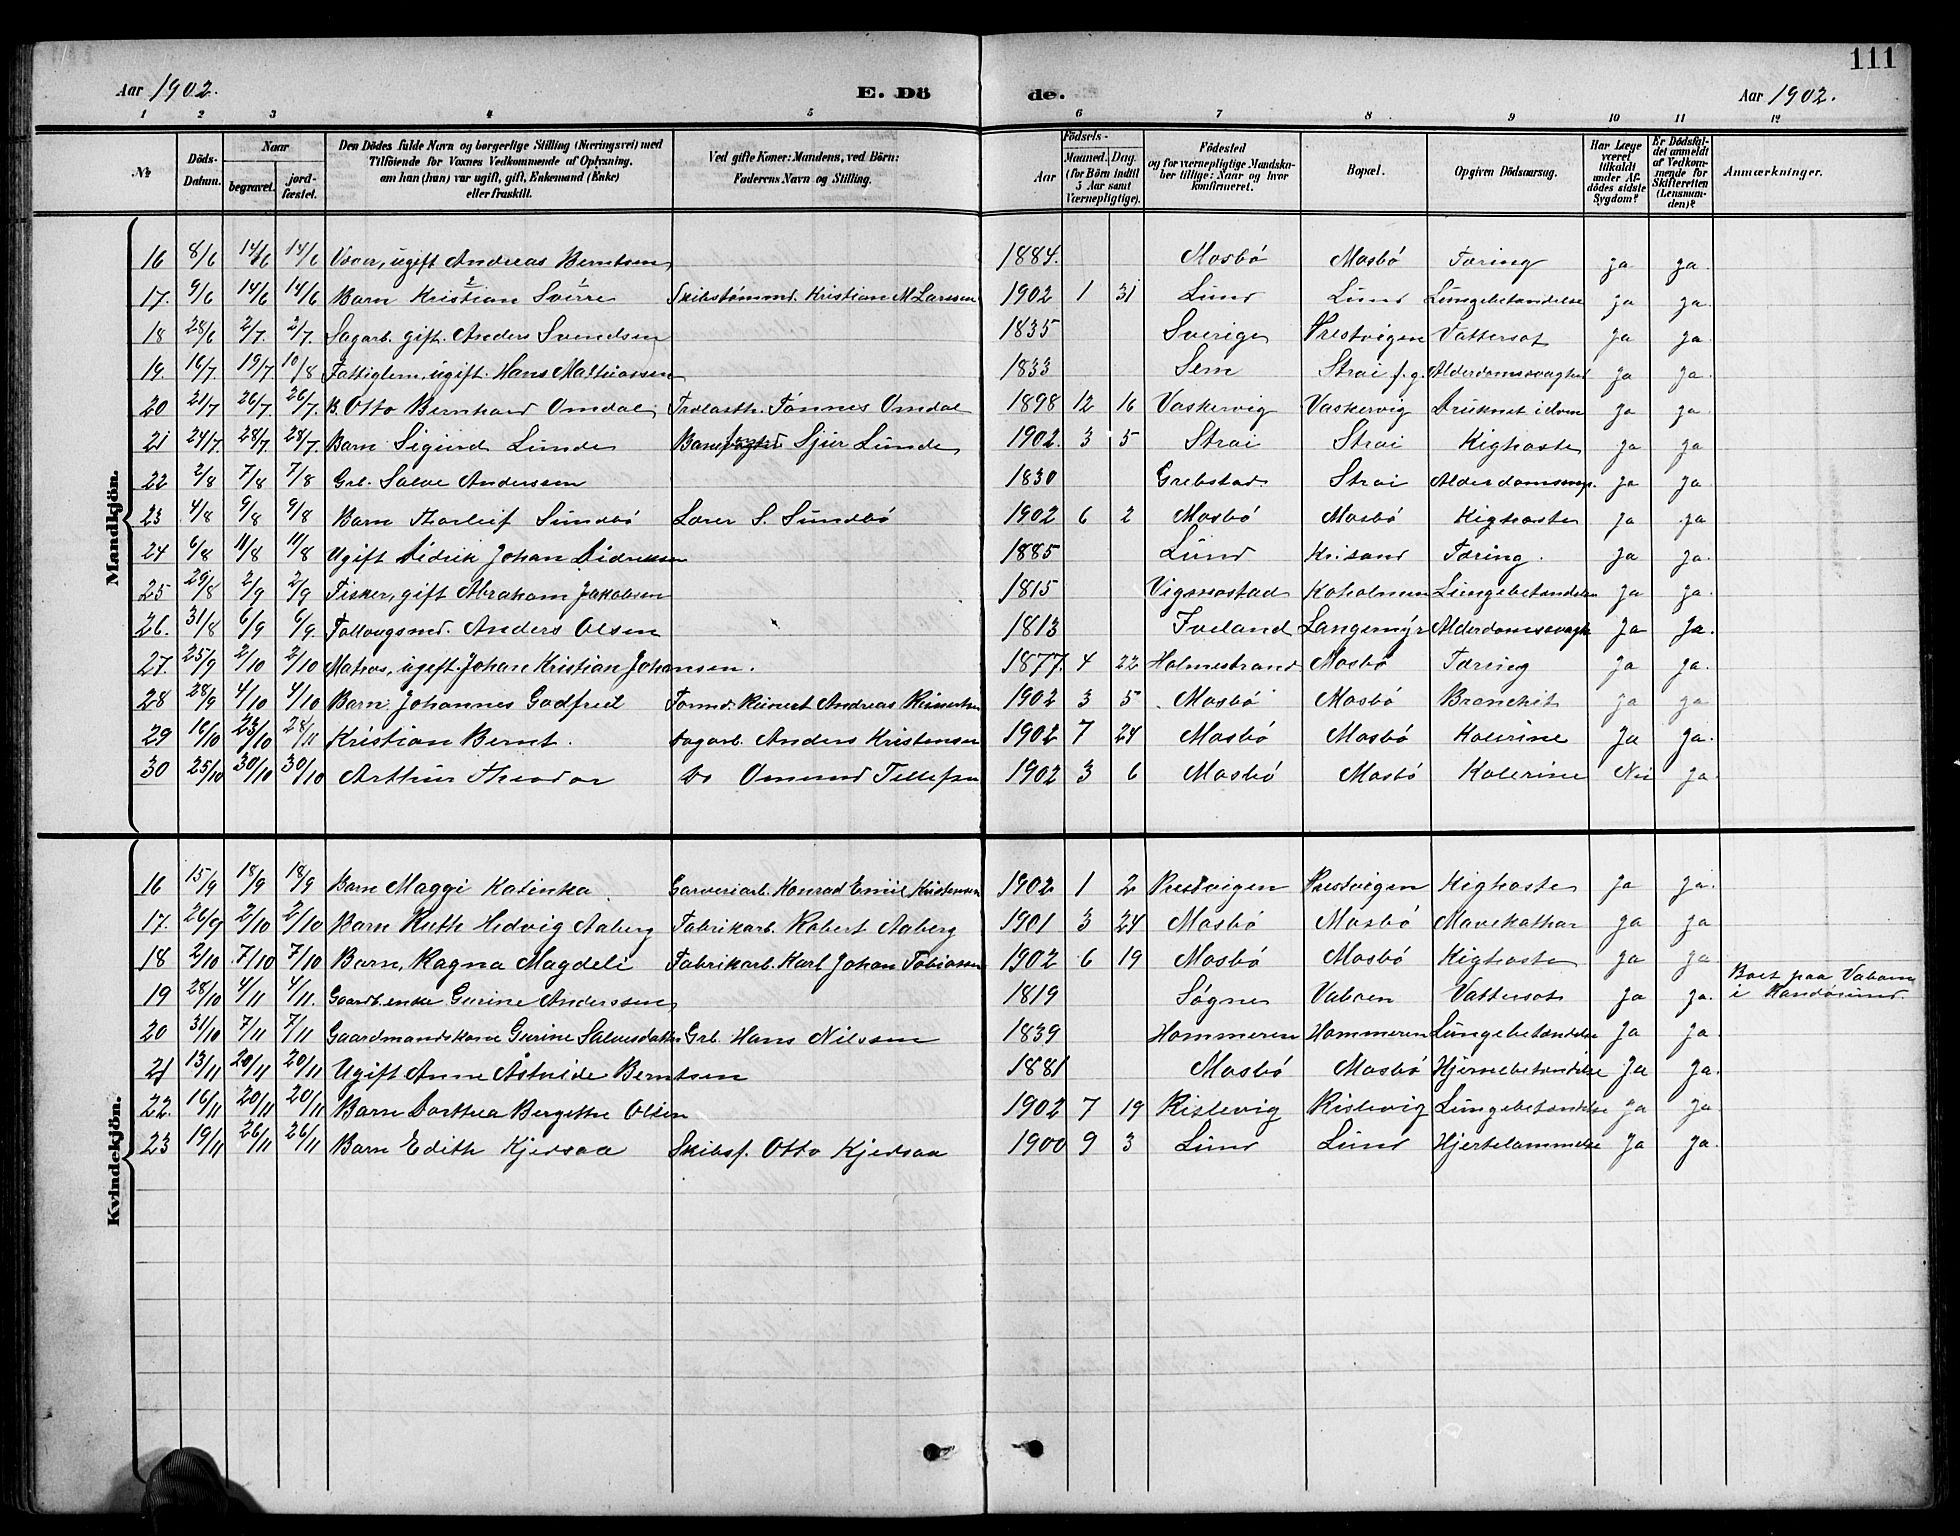 111
Aar 1902. E. Dö de. Aar 1902.
1 2 3 4 5 6 7 8 9 10 11 12
№ Döds-Datum. Naar begravet. jordfæstet. Den Dödes fulde Navn og borgerlige Stilling (Næringsvei) med Tilföiende for Voxnes Vedkommende af Oplysning, om han (hun) var ugift, gift, Enkemand (Enke) eller fraskilt. Ved gifte Koner: Mandens, ved Börn: Faderens Navn og Stilling. Födsels- Aar Maaned. Dag. (for Börn indtil 5 Aar samt Værnepligtige). Födested og for værnepligtige Mandskaber tillige: Naar og hvor konfirmeret. Bopæl. Opgiven Dödsaarsag. Har Læge været tilkaldt under Afdödes sidste Sygdom? Er Dödsfaldet anmeldt af Vedkommende for Skifteretten (Lensmanden)? Anmærkninger.
Mandkjön.
16 8/6 14/6 14/6 ugift Andreas Berntsen 1884. Mosbö Mosbö Tæring ja ja.
17. 9/6 14/6 14/6 Barn Kristian Sverre Skibstømmd. Kristian M Larssen 1902 1 31 Lund Lund Lungebetændelse ja ja.
18 28/6 2/7. 2/7. Sagarb. gift. Anders Svendsen 1835 Sverige Prestvigen Vattersot ja ja.
19. 16/7. 19/7 10/8 Fattiglem, ugift. Hans Mathiassen 1833 Sem Strai f.g. Alderdomssvaghed ja ja.
20 21/7 26/7. 26/7. B. Otto Bernhard Omdal Trælasth. Tönnes Omdal 1898 12 16 Vaskervig Vaskervig Druknet ja ja
21 24/7. 28/7. 28/7. Barn Sigurd Lunde Sjur Lunde 1902. 3 5 Strai Strai Kighoste ja ja
22 2/8 7/8 7/8 Grb. Salve Anderssen 1830 Grebstad. Strai ja ja
23 4/8 9/8 9/8 Barn Thorleif Sundbö Lærer S. Sundbö 1902 6 2 Mosbö Mosbö Kighoste ja ja
24 6/8 11/8 11/8 Ugift Didrik Johan Didriksen 1885 Lund Krisand Tæring. ja ja.
25 29/8 2/9 2/9 Fisker, gift Abraham Jakobsen 1815 Vigmostad Koholmen Lungebetændelse ja ja.
26. 31/8 6/9 6/9. Anders Olsen 1813 Iveland Langemyr Alderdomssvagh ja ja.
27. 25/9 2/10 2/10 Matros, ugift. Johan Kristian Johansen. 1877. 4 22 Holmestrand Mosbö Tæring ja ja.
28 28/9 4/10 4/10 Barn. Johannes Godfred Formd. Reinert Andreas Reinertsen 1902 3 5 Mosbö Mosbö Bronchit ja ja
29 16/10 23/10 28/11 Kristian Bernt. Dagarb. Anders Kristensen 1902 7 24 Mosbö Mosbö Kolerine ja ja.
30 25/10 30/10 30/10 Arthur Theodor Do Omund Tellefsen 1902 3 6 Mosbö Mosbö Kolerine Nei ja
Kvindekjön.
16 15/9 18/9 18/9 Barn Maggi Katinka Garveriarb. Konrad Emil Kristensen 1902 1 2 Prestvigen Prestvigen Kighoste ja ja.
17. 26/9 2/10 2/10 Barn Ruth Hedvig Aaberg Fabrikarb. Robert Aaberg 1901 3 24 Mosbö Mosbö Mavekathar ja ja
18 2/10 7/10 7/10 Barn, Ragna Magdeli Fabrikarb. Karl Johan Tobiassen 1902 6 19 Mosbö Mosbö Kighoste ja ja
19 28/10 4/11 4/11. Gaardb. enke Gurine Anderssen 1819 Søgne Valoen Vattersot ja ja. Boet paa
i Randösund.
20 31/10 7/11 7/11 Gaardmandskone Gurine Salvesdatter Grb. Hans Nilssen 1839 Hommeren Hommeren Lungebetændelse ja ja.
21 13/11 20/11 20/11 Ugift Anne Åstride Berntsen 1881 Mosbö Mosbö Hjernebetændelse ja ja.
22. 16/11 20/11 20/11 Barn Dorthea Bergithe Olsen 1902 7 19 Rislevig Rislevig Lungebetændelse ja ja
23 19/11 26/11 26/11 Barn Edith Kjedsaa Skibsf. Otto Kjedsaa 1900 9 3 Lund Lund Hjertelammelse ja ja.